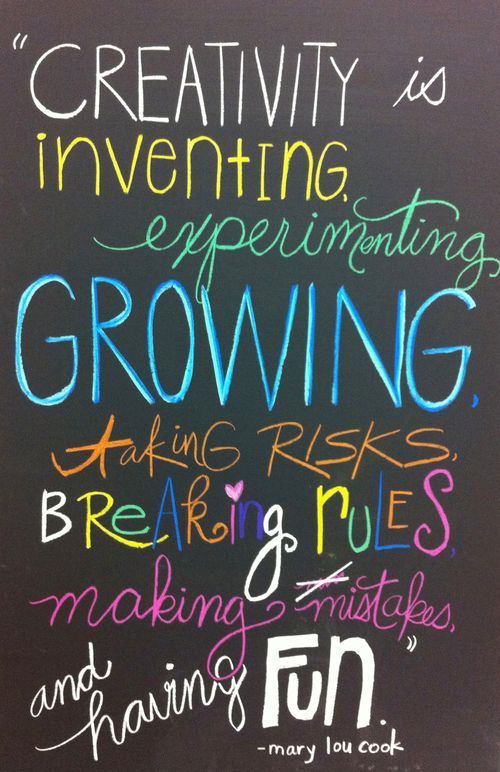 "CREATIVITY is
inventING,
experimenting,
GROWING,
takinG RISKS,
BReAking ruLES,
making mistakes,
and having Fun."
-mary lou cook